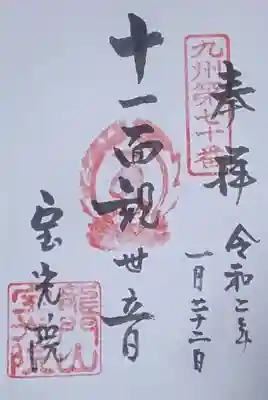 奉拝
九州第七十番
令和二年
一月廿二日
十一面観世音
宝光院